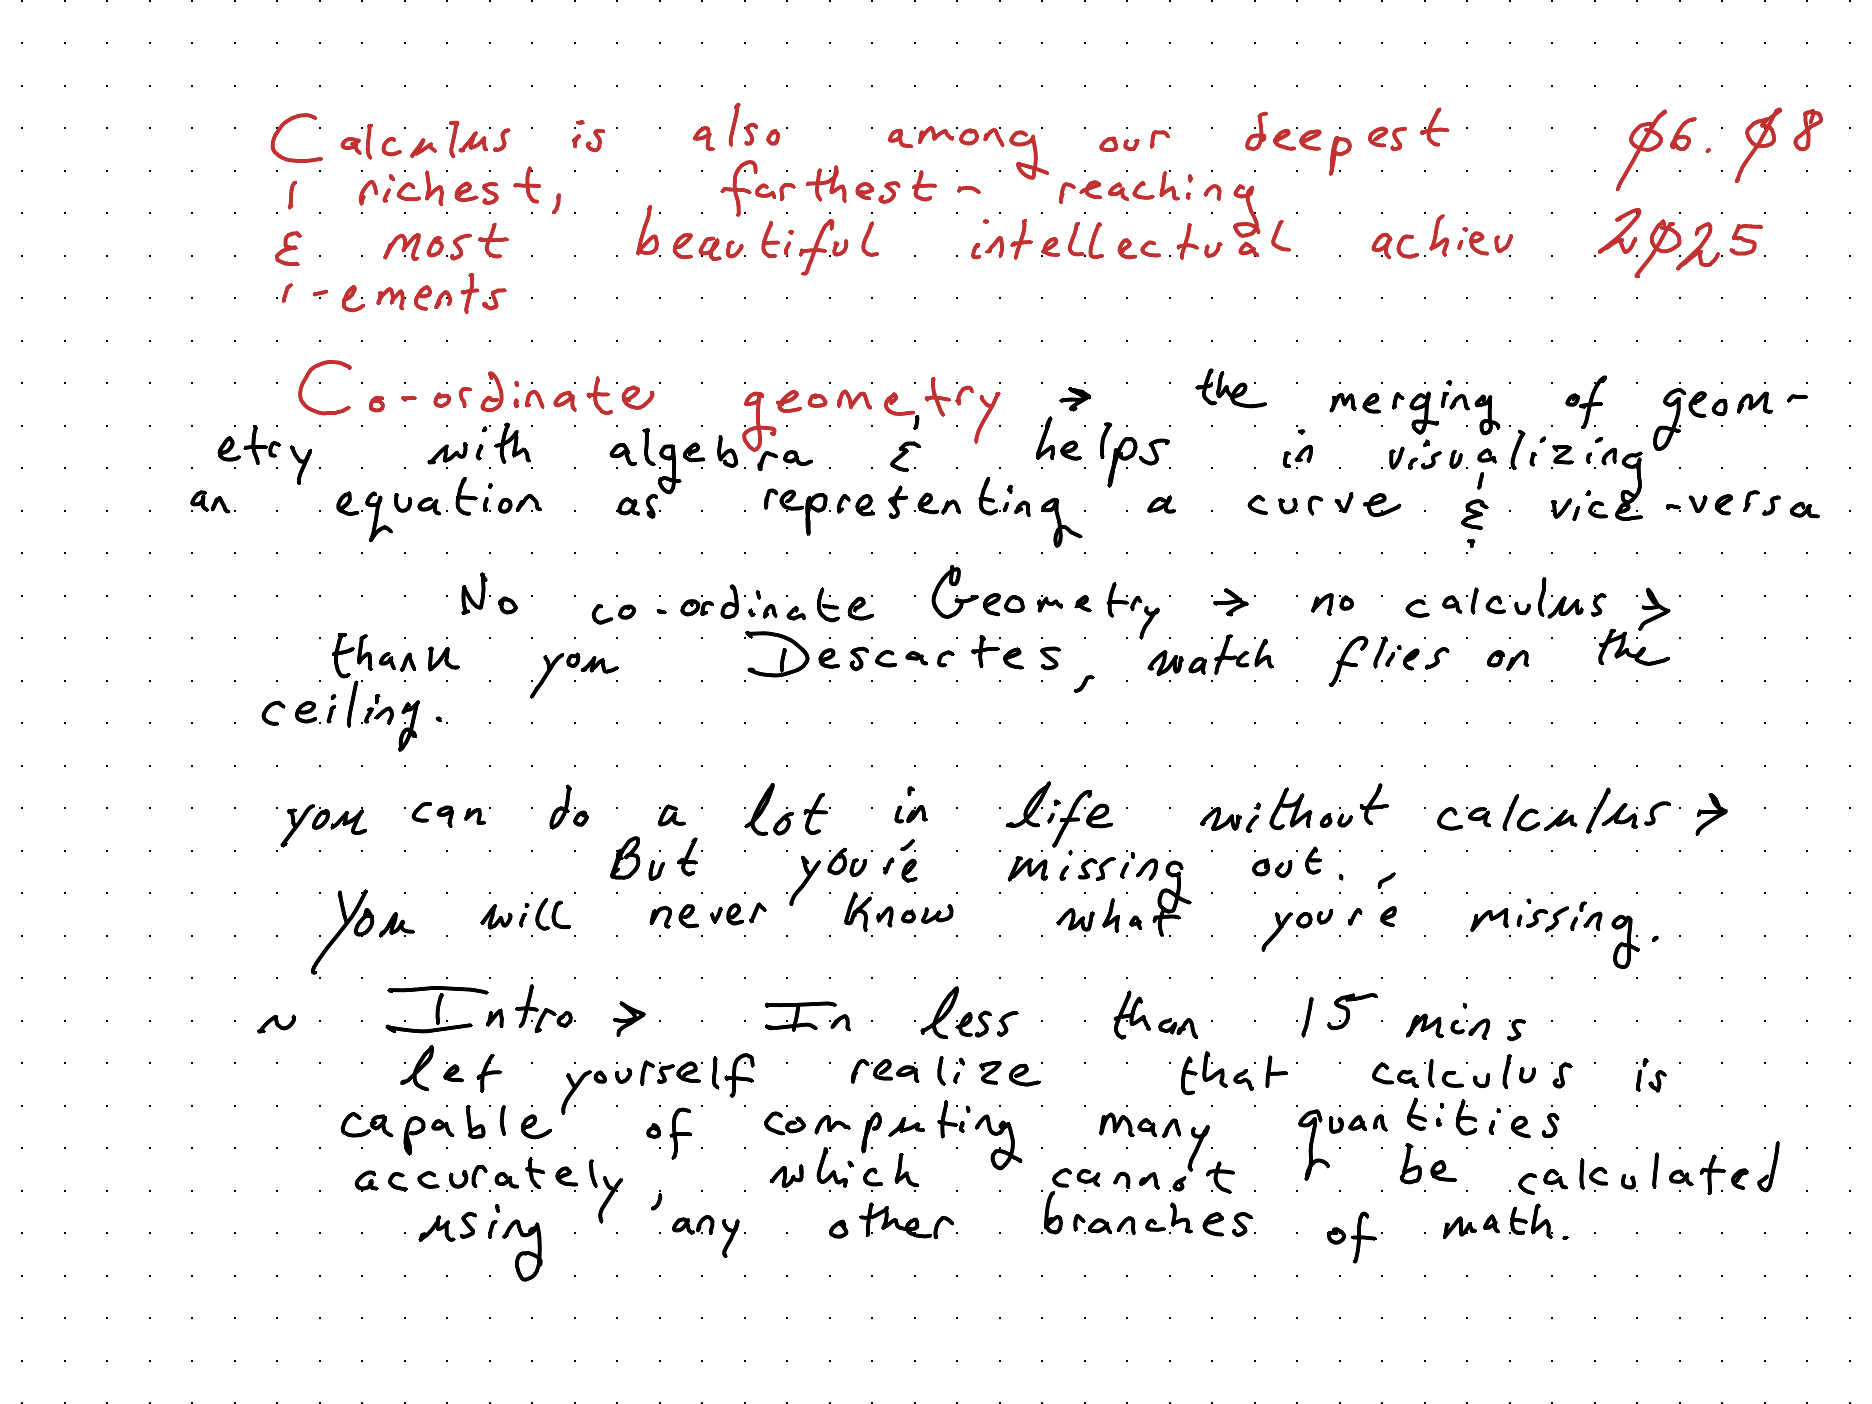 Calculus is also among our deepest 06.08
richest, farthest- reaching
& most beautiful intellectual achiev 2025
-ements
Co-ordinate geometry → the merging of geom-
etry with algebra & helps in visualizing
an equation as representing a curve & vice-versa
No co-ordinate Geometry → no calculus →
thank you Descartes, watch flies on the
ceiling.
you can do a lot in life without calculus →
But you're missing out.
You will never know what you're missing.
~ Intro → In less than 15 mins
let yourself realize that calculus is
capable of computing many quantities
accurately, which cannot be calculated
using any other branches of math.